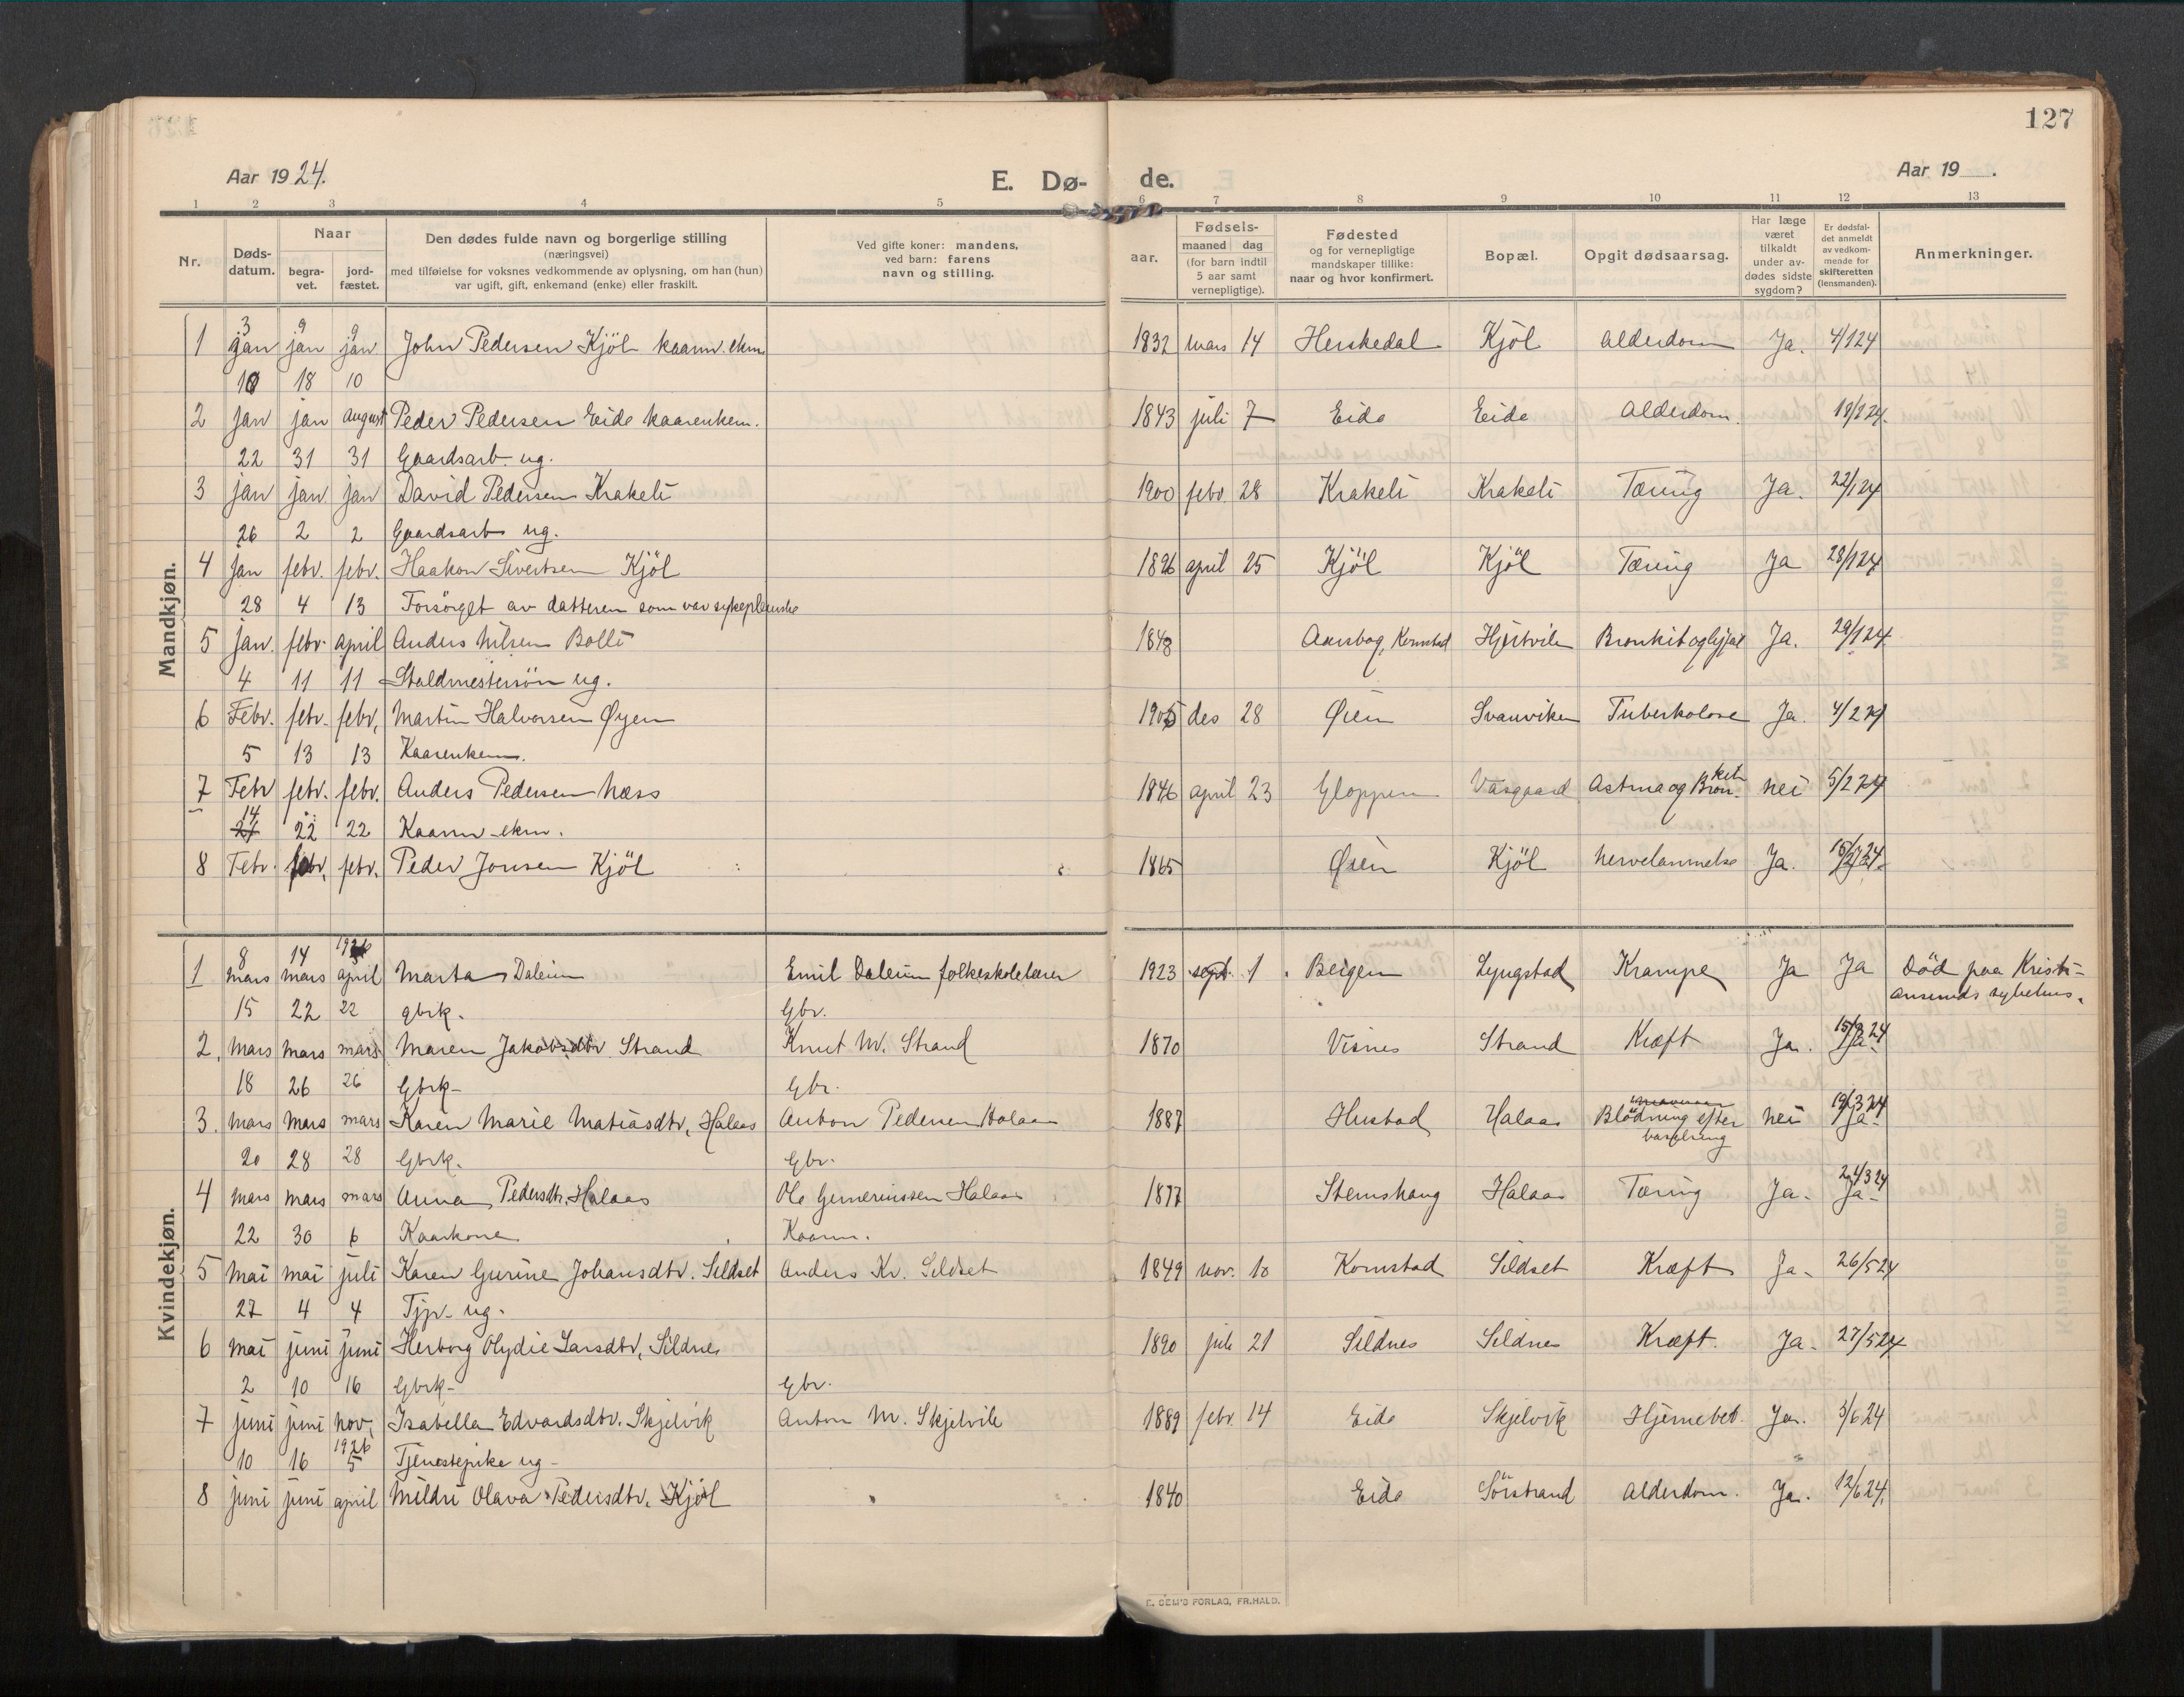 127
Aar 1924.
E. Dø- de.
Aar 19 .
1 2 3 4 5 6 7 8 9 10 11 12 13
Nr.
Døds-
datum.
Naar
begra-
vet.
jord-
fæstet.
Den dødes fulde navn og borgerlige stilling
(næringsvei)
med tilføielse for voksnes vedkommende av oplysning, om han (hun)
var ugift, gift, enkemand (enke) eller fraskilt.
Ved gifte koner: mandens,
ved barn: farens
navn og stilling.
Fødsels-
aar.
maaned dag
(for barn indtil
5 aar samt
vernepligtige).
Fødested
og for vernepligtige
mandskaper tillike:
naar og hvor konfirmert.
Bopæl.
Opgit dødsaarsag.
Har læge
været
tilkaldt
under av-
dødes sidste
sygdom?
Er dødsfal-
det anmeldt
av vedkom-
mende for
skifteretten
(lensmanden).
Anmerkninger.
Mandkjøn.
3 9 9
1 jan jan jan John Pedersen Kjöl kaarm. ekm. 1832 mars 14 Herskedal Kjöl alderdom Ja. 4/1 24
10 18 10
2 Jan jan august Peder Pedersen Eide kaarenkem. 1843 juli 7 Eide Eide alderdom.
22 31 31 Gaardsarb. ug.
3 jan jan jan David Pedersen Krakeli 1900 febr. 28 Krakeli Krakeli Tæring Ja. 22/1 24
26 2 2 Gaardsarb ug.
4 jan febr. febr. Haakon Sivertsen Kjöl 1896 april 25 Kjöl Kjöl Tæring Ja 28/1 24
28 4 13 Forsörget av datteren som var sykepleierske
5 jan. febr. april Anders Nilsen Bolli 1848 Kornstad Hjertvik Ja. 29/1 24
4 11 11 ug.
6 Febr. febr. febr, Martin Halvorsen Øyen 1905 des 28 Øien Svanviken Tuberkolose Ja. 4/2 24
5 13 13 Kaarenkem.
7 Febr febr. febr. Anders Pedersen Næss 1846 april 23 Gloppen Vasgaard Astma og Bron-kit nei 5/2 24
14 22 22 Kaarm-ekm.
8 Febr. febr. febr. Peder Jonsen Kjöl 1865 Øien Kjöl Nervelammelse Ja. 15/2 24.
Kvindekjøn.
8 14 1926
1 mars mars april Marta Daleim Emil Daleim folkeskolelærer 1923 sept. 1 Bergen Lyngstad Krampe Ja Ja Död paa Kristi-
ansunds sykehus.
15 22 22 gbrk. Gbr.
2. mars mars mars Maren Jakobsdtr Strand Knut M. Strand 1870 Visnes Strand Kræft Ja. 15/3 24 Ja-
18 26 26 Gbrk- Gbr.
3. mars mars mars Karen Marie Matiasdtr, Halaas Anton Pedersen Halaas 1887 Hustad Halaas Blödning efter
barselseng nei 19/3 24 Ja-
20 28 28 Gbrk. Gbr.
4 mars mars mars Anna Pedersdtr. Halaas Ole Halaas 1877 Stemshaug Halaas Tæring Ja. 24/3 24 Ja-
22 30 6 Kaarkone Kaarm.
5 Mai mai juli Karen Gurine Johansdtr. Sildset Anders Kr. Sildset 1849 nov. 10 Kornstad Sildset Kræft Ja. 26/5 24
27 4 4 Tjp. ug.
6 mai juni juni Herborg Olydie Larsdtr, Sildnes 1890 juli 21 Sildnes Sildnes Kræft. Ja. 27/5 24
2 10 16 Gbrk- Gbr.
7 juni juni nov. Isabella Edvardsdtr. Skjelvik Anton M. Skjelvik 1889 febr. 14 Eide Skjelvik Hjernebet. Ja. 3/6 24
10 16 1926 5 Tjenestepike ug-
8 juni juni april Mildri Olava Pedersdtr. Kjöl 1840 Eide Sörstrand alderdom. Ja. 12/6 24.
E. SEM'S FORLAG, FR.HALD.